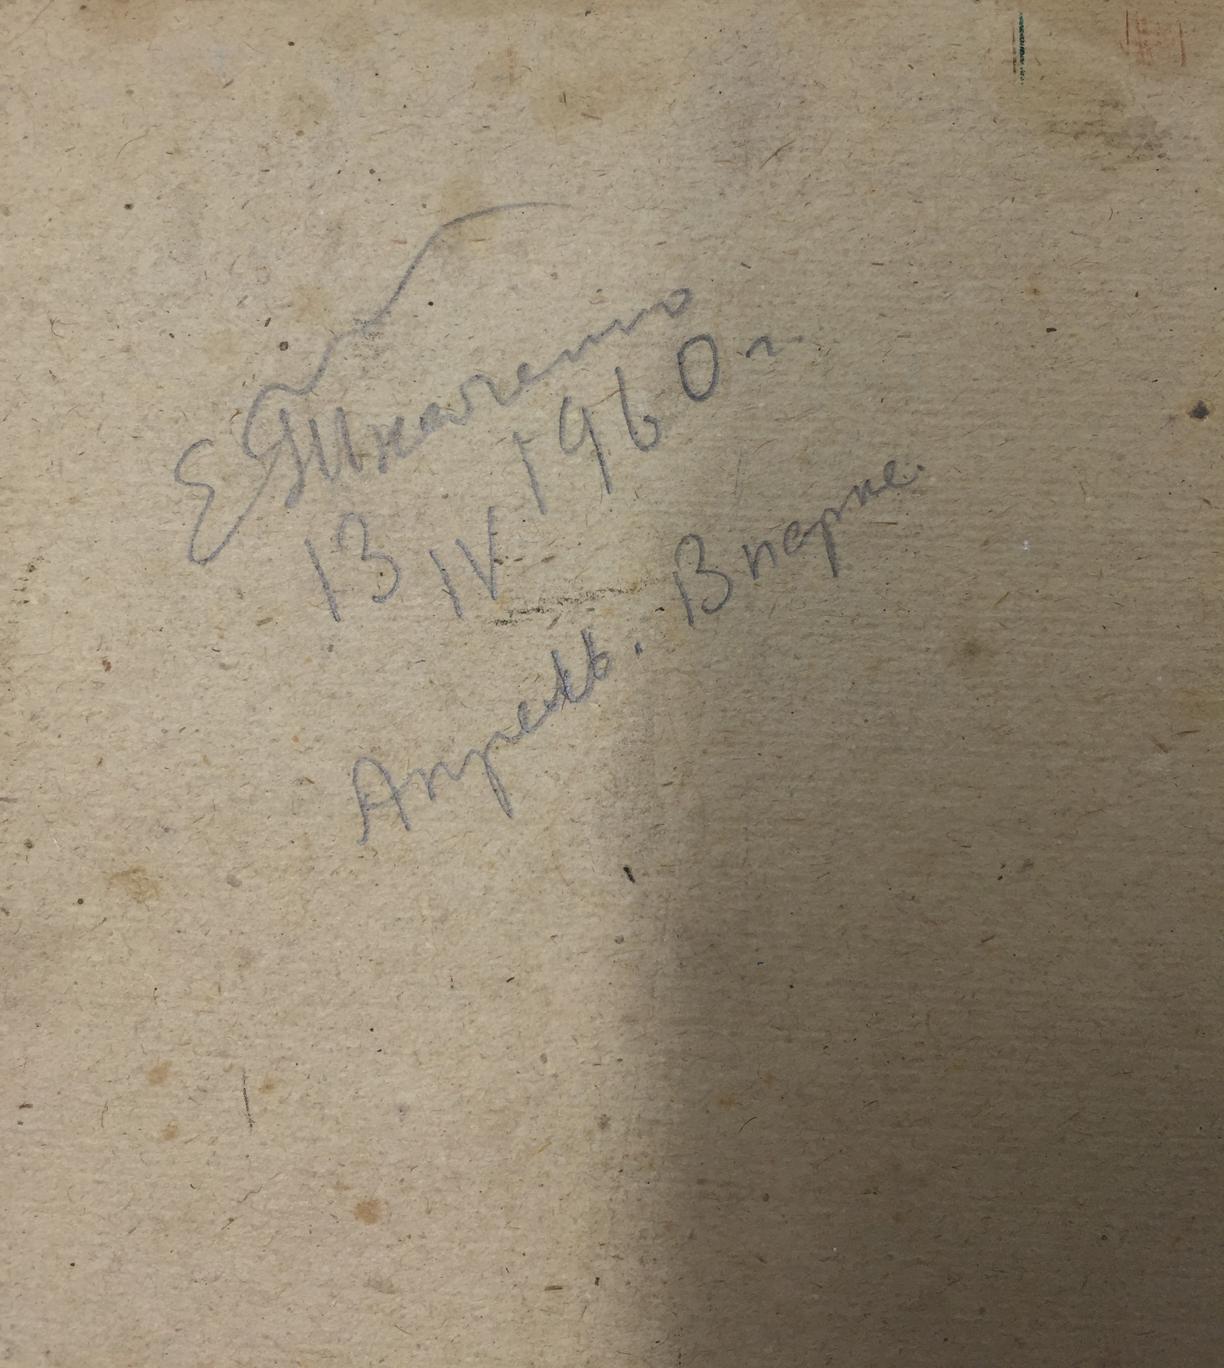 Е Ткаченко
13 IV 1960 г.
Апрель. В парке.